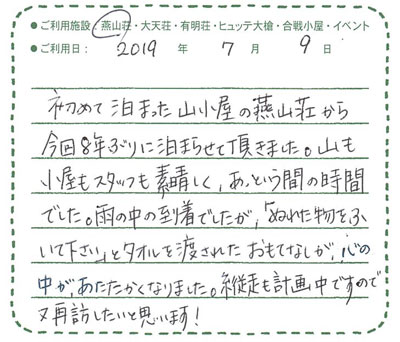 ●ご利用施設：燕山荘・大天荘・有明荘・ヒュッテ大槍・合戦小屋・イベント
●ご利用日： 2019 年 7 月 9 日
初めて泊まった山小屋の燕山荘から
今回8年ぶりに泊まらせて頂きました。山も
小屋もスタッフも素晴しく、あっという間の時間
でした。雨の中の到着でしたが、「ぬれた物をふ
いて下さい」とタオルを渡されたおもてなしが、心の
中が、あたたかくなりました。縦走も計画中ですので
又再訪したいと思います！